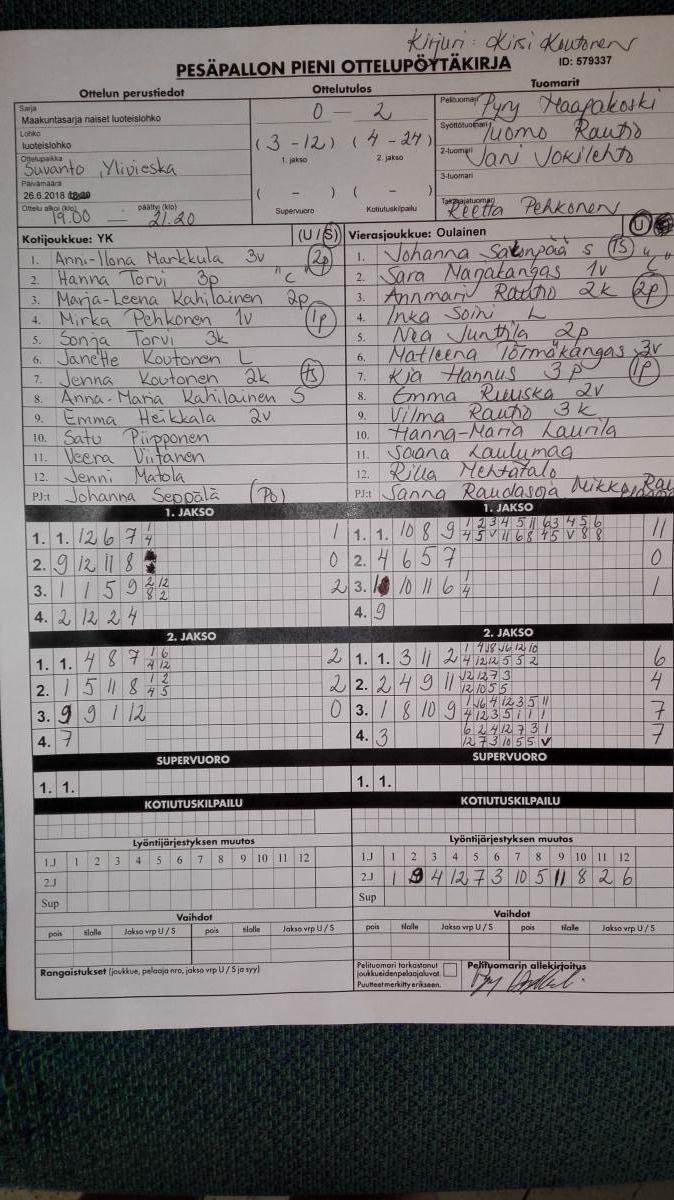 Kirjuri: Kirsi Koutonen
PESÄPALLON PIENI OTTELUPÖYTÄKIRJA ID: 579337
Ottelun perustiedot Ottelutulos Tuomarit
Sarja
Maakuntasarja naiset luoteislohko
0 – 2
Pelituomari Pyry Haapakoski
Lohko
luoteislohko
(3 - 12) (4 - 24)
1. jakso 2. jakso
Syöttötuomari Tuomo Rautio
Ottelupaikka
Suvanto, Ylivieska
2-tuomari Jani Jokilehto
Päivämäärä
26.6.2018
( - ) ( - )
Supervuoro Kotiutuskilpailu
3-tuomari
Ottelu alkoi (klo) päättyi (klo)
19.00 — 21.20
Takarajatuomari Reetta Pehkonen
Kotijoukkue: YK (U / S)
1. Anni-Ilona Markkula 3v 2p
2. Hanna Torvi 3p "C"
3. Marja-Leena Kahilainen 2p
4. Mirka Pehkonen 1v 1p
5. Sonja Torvi 3k
6. Janette Koutonen L
7. Jenna Koutonen 2k ts
8. Anna-Maria Kahilainen S
9. Emma Heikkala 2v
10. Satu Piirpponen
11. Veera Viitanen
12. Jenni Matola
PJ:t Johanna Seppälä (Po)
Vierasjoukkue: Oulainen U
1. Johanna S (TS)
2. Sara Marjakangas 1v "C"
3. Annmari Rautio 2k 2p
4. Inka Soini L
5. Nea Junttila 2p
6. Matleena Törmäkangas 3v
7. Kia Hannus 3p 1p
8. Emma Ruuska 2v
9. Vilma Rautio 3k
10. Hanna-Maria Laurila
11. Saana Laulumaa
12. Riila
PJ:t Sanna Raudasoja Mikko
1. JAKSO
1. 1. 12 6 7 1/4 1
2. 9 12 11 8 0
3. 1 1 5 9 2/8 12/2 2
4. 2 12 2 4
1. JAKSO
1. 1. 10 8 9 1 2 3 4 5 11 6 3 4 5 6 11
4 5 v 11 6 8 4 5 v 8 8
2. 4 6 5 7 0
3. 10 11 6 1/4 1
4. 9
2. JAKSO
1. 1. 4 8 7 1/4 6/12 2
2. 1 5 11 8 1/4 2/5 2
3. 9 9 1 12 0
4. 7
2. JAKSO
1. 1. 3 11 2 6
4 12 12 5 5 2
2. 2 4 9 11 12 12 7 3 4
12 10 5 5
3. 1 8 10 9 7
4 12 3 5 1 1 1
4. 3 6 2 4 12 7 3 1 7
12 7 3 10 5 5 v
SUPERVUORO SUPERVUORO
1. 1. 1. 1.
KOTIUTUSKILPAILU KOTIUTUSKILPAILU
Lyöntijärjestyksen muutos
1.J 1 2 3 4 5 6 7 8 9 10 11 12
2.J
Sup
Lyöntijärjestyksen muutos
1.J 1 2 3 4 5 6 7 8 9 10 11 12
2.J 1 9 4 12 7 3 10 5 11 8 2 6
Sup
Vaihdot Vaihdot
pois tilalle Jakso vrp U / S pois tilalle Jakso vrp U / S
pois tilalle Jakso vrp U / S pois tilalle Jakso vrp U / S
Rangaistukset (joukkue, pelaaja nro, jakso vrp U / S ja syy)
Pelituomari tarkastanut
joukkueidenpelaajaluvat.
Puutteet merkitty erikseen.
Pelituomarin allekirjoitus